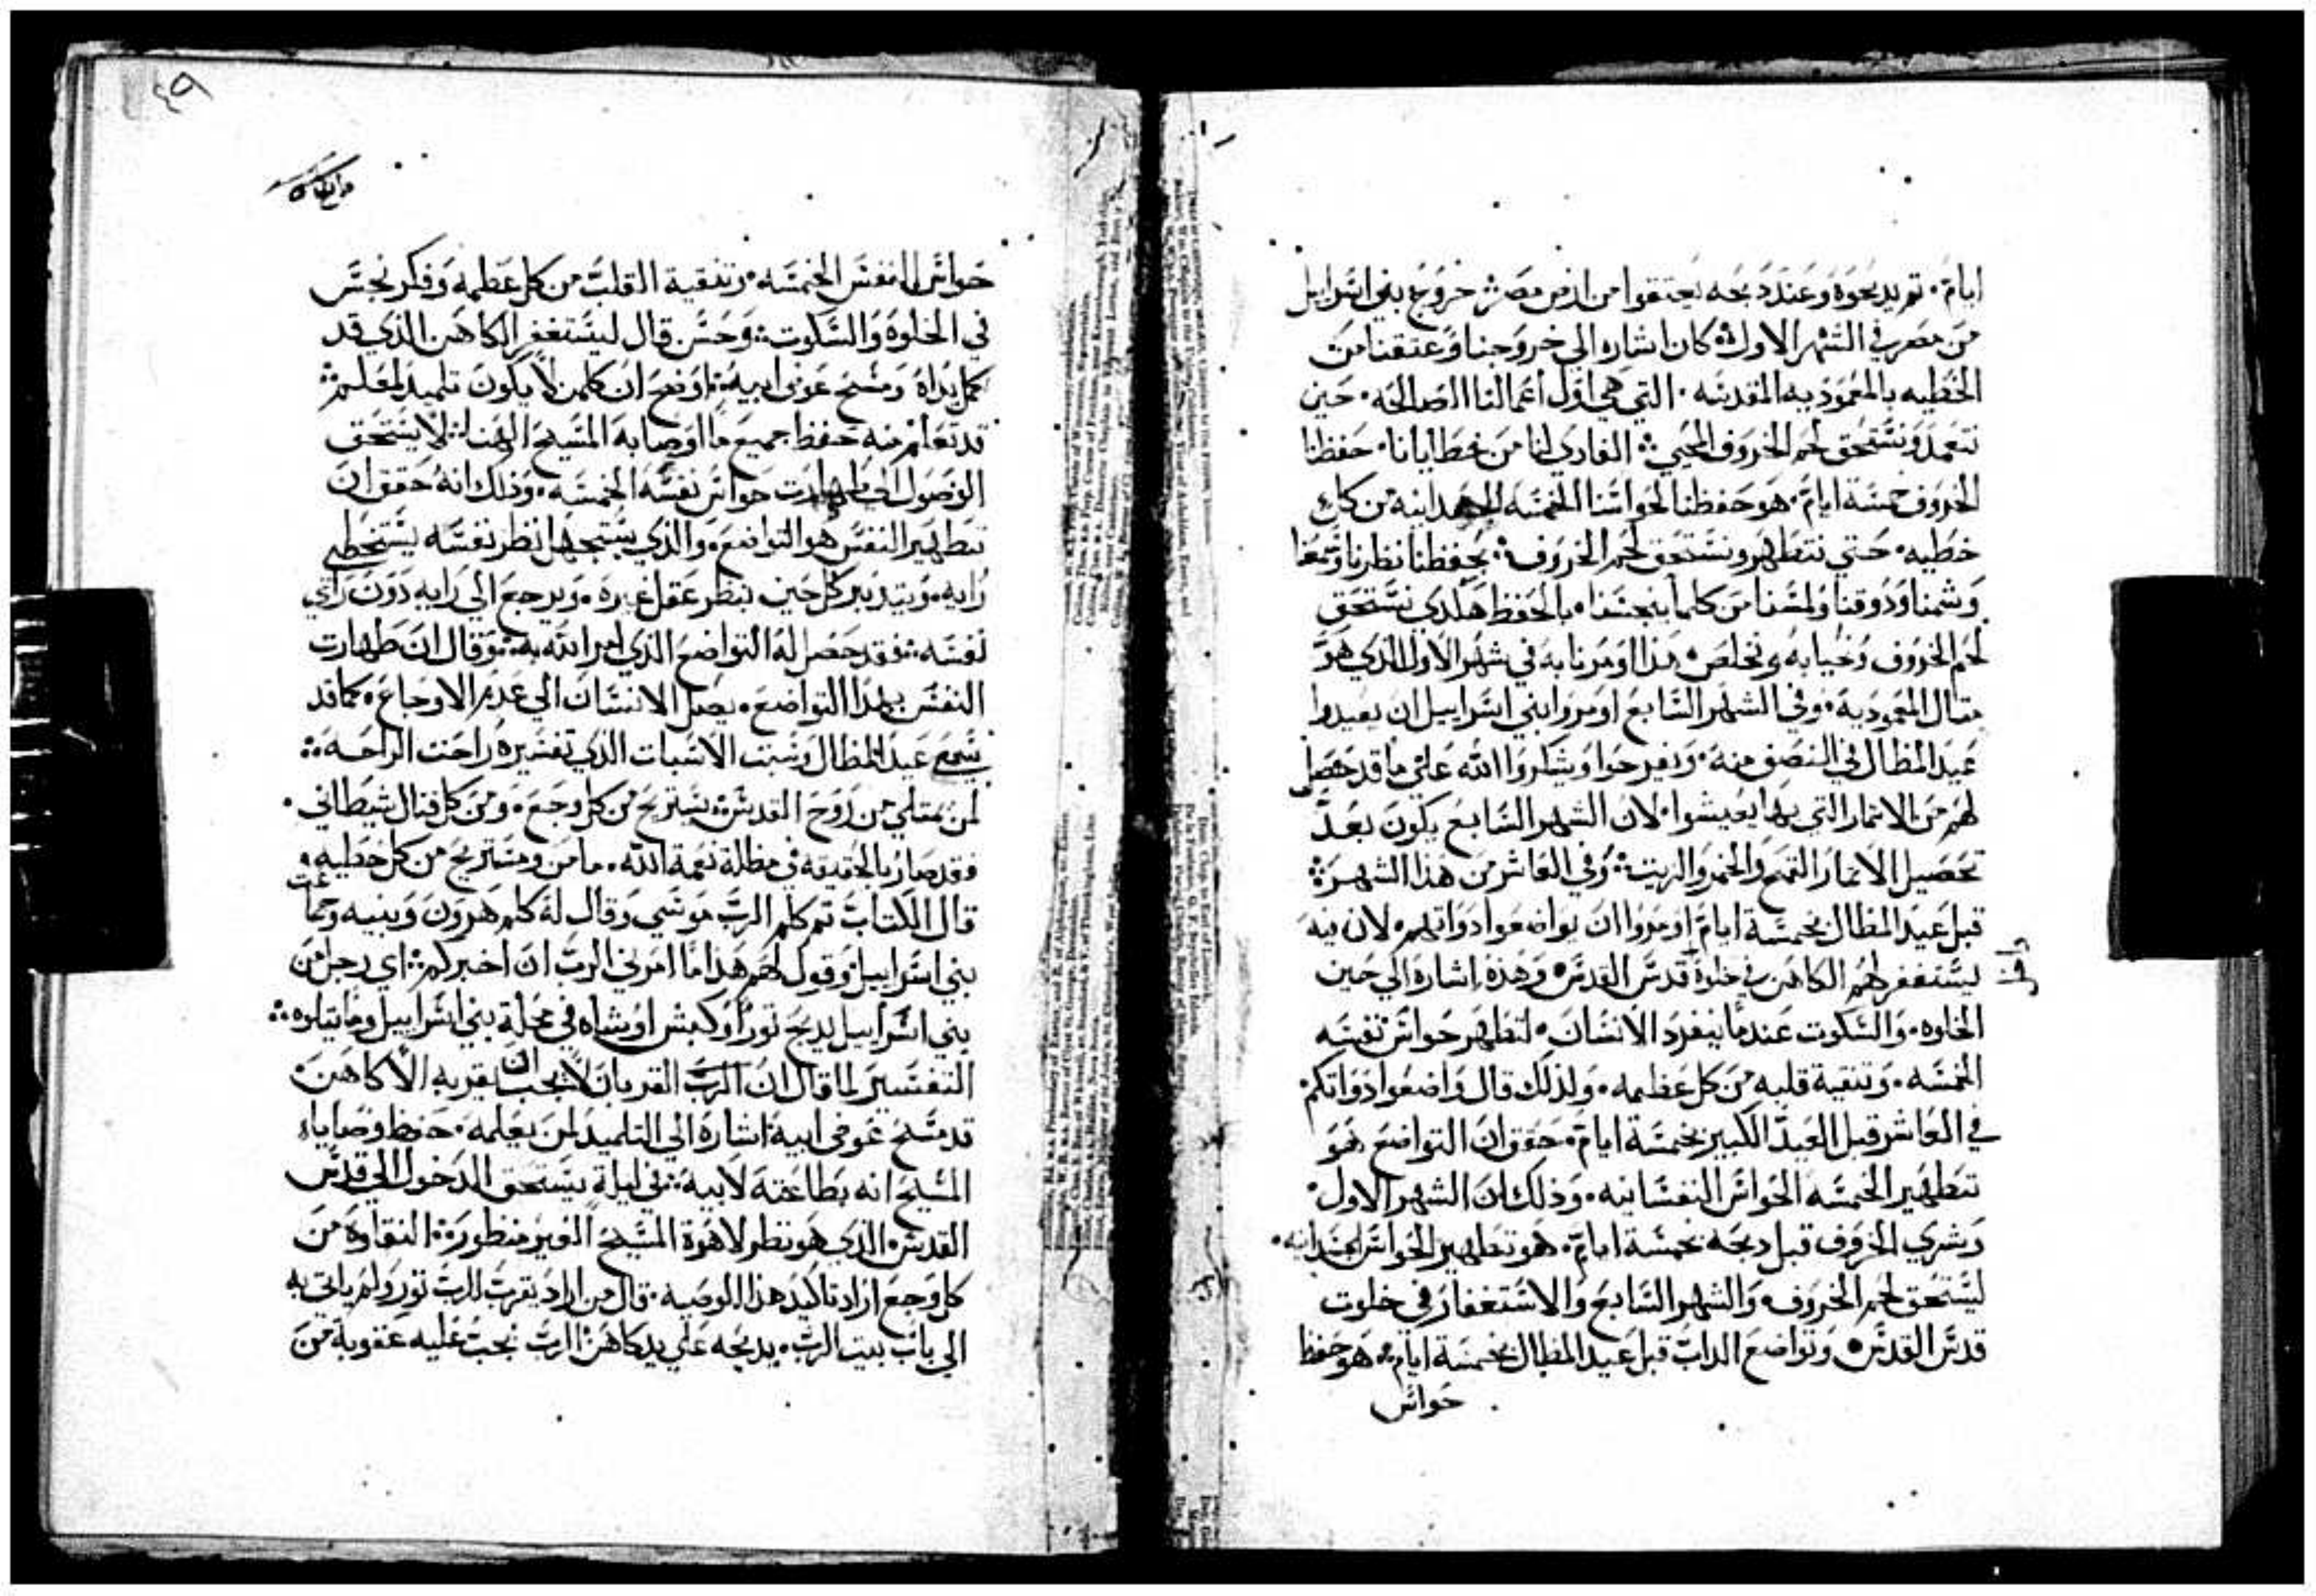 ايام. ثم يدبحوه وعند دبحه يعتقوا من ارض مصر خروج بني اسراييل
من مصر في الشهر الاول كان اشاره الي خروجنا وعتقنا من
الخطيه بالمعموديه المقدسه. التي هي اول اعمالنا الصالحه. حين
نتعمد ونستحق لحم الخروف المحيي الفادي لنا من خطايانا. حفظنا
الخروف خمسة ايام. هو حفظنا لحواسنا الخمسه الجسدانيه من كل
خطيه. حتي نتطهر ونستحق لحم الخروف بحفظنا نظرنا وسمعنا
وشمنا ودوقنا ولمسنا من كلما ينجسنا. بالحفظ هكدي نستحق
لحم الخروف ونحيا به ونخلص. هذا اومرنا به في شهر الاول الذي هو
متال المعموديه. وفي الشهر السابع اومروا بني اسراييل ان يعيدوا
عيد المظال في النصف منه. ويفرحوا ويشكروا الله علي ما قد حصل
لهم من الاتمار التي بها يعيشوا. لان الشهر السابع يكون بعد
تحصيل الاتمار القمح والخمر والزيت وفي العاشر من هذا الشهر
قبل عيد المظال بخمسة ايام اومروا ان يواضعوا دواتهم. لان فيه
ليستغفر لهم الكاهن في خلوة قدس القدس وهذه اشارة الي حين
الخلوه. والسكوت عندما ينفرد الانسان. لتطهر حواس نفسه
الخمسه. وتنقية قلبه من كل عظمه. ولذلك قال واضعوا دواتكم
في العاشر قبل العيد الكبير بخمسة ايام. حقق ان التواضع هو
تطهير الخمسه الحواس النفسانيه. وذلك ان الشهر الاول.
وشري الخروف قبل دبحه بخمسة ايام. هو تطهير الحواس الجسدانيه.
ليستحق لحم الخروف. والشهر السابع والاستغفار في خلوت
قدس القدس. وتواضع الدات قبل عيد المظال بخمسة ايام. هو حفظ
حواس
٤٩
حواس النفس الخمسه. وتنقية القلب من كل عظمه وفكر نجس
في الخلوه والسكوت وحسن قال ليستغفر الكاهن الذي قد
كمل يداه ومسح عوض ابيه اوضح ان كلمن لا يكون تلميد لمعلم
قد تعلم منه حفظ جميع ما اوصا به المسيح الهنا لا يستحق
الوصول الي طهارت حواس نفسه الخمسه. وذلك انه حقق ان
تطهير النفس هو التواضع. والذي يستجهل نظر نفسه يستخطي
رايه. ويتدبر كل حين بنظر عقل غيره. ويرجع الي رايه دون راي
نفسه فقد حصل له التواضع الذي امر الله به وقال ان طهارت
النفس بهذا التواضع. يصل الانسان الي عدم الاوجاع. كما قد
سمع عيد المظال وسبت الاسبات الذي تفسيره راحت الراحه
لمن يمتلي من روح القدس يستريح من كل وجع. ومن كل قتال شيطاني.
فقد صار بالحقيقه في مظلة نعمة الله. مامن ومستريح من كل خطيه
قال الكتاب تم كلم الرب موسي وقال له كلم هرون وبنيه وجماعت
بني اسراييل وقول لهم هذا ما امرني الرب ان اخبركم اي رجل من
بني اسراييل يدبح تورا او كبش او شاه في محلة بني اسراييل وما يتلوه
التفسير لما قال ان الرب القربان لا يجب ان يقربه الا كاهن.
قد مسح عوض ابيه اشارة الي التلميد لمن يعلمه. حفظ وصاياه
المسيح انه بطاعته لابيه يستحق الدخول الي قدس
القدس. الذي هو نظر لاهوة المسيح الغير منظوره النقاوه من
كل وجع اراد تاكيد هذا الوصيه. قال من اراد يقرب للرب تور ولم ياتي به
الي باب بيت الرب. يدبحه علي يد كاهن الرب يجب عليه عقوبة من